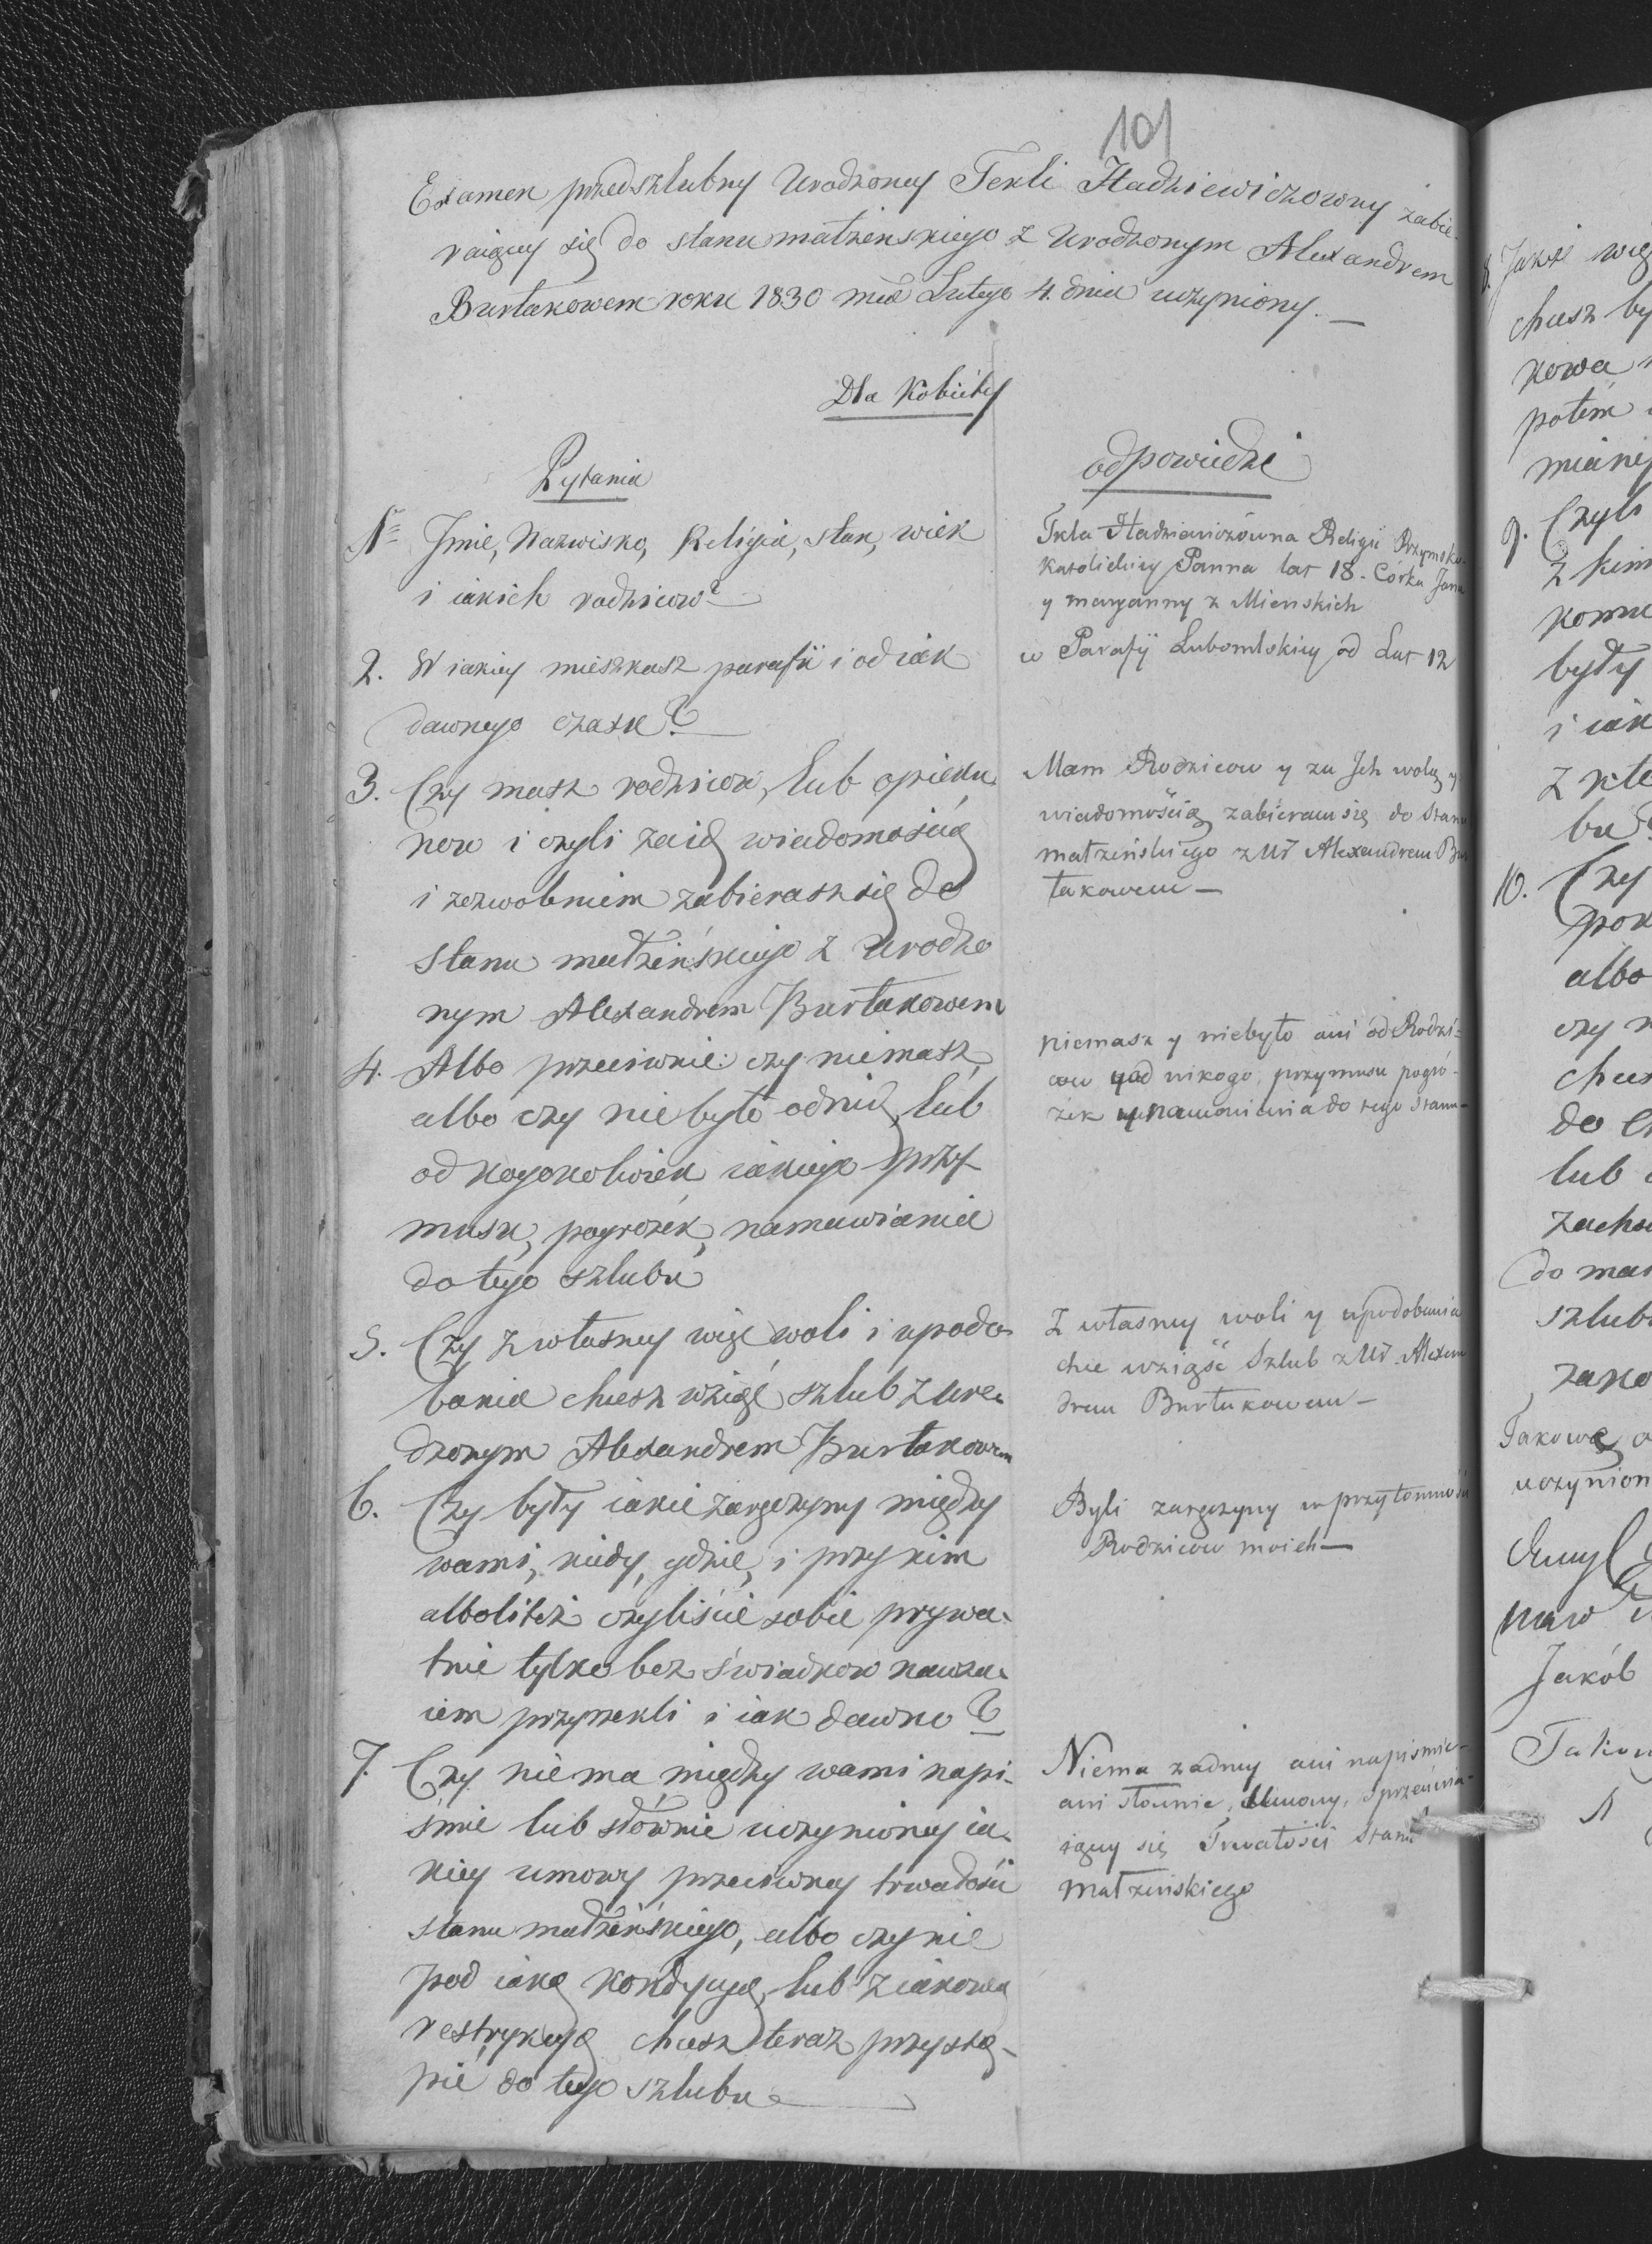 101
Examen przedszlubny Urodzoney Tekli Hadziewiczowny zabie-
raiącey się do stanu małżenskiego z Urodzonym Alexandrem
Burłakowem roku 1830 mca Lutego 4. dnia uczyniony.
Dla Kobiéty
Pytania
1. Jmie, Nazwisko, Religia, stan, wiek
i iakich rodzicow?
2. W iakiey mieszkasz parafii i od iak
dawnego czasu?
3. Czy masz rodzicow, lub opieku-
now i czyli za ich wiadomością
i zezwoleniem zabierasz się do
stanu małżeńskiego z Urodzo
nym Alexandrem Burłakowem
4. Albo przeciwnie: czy niemasz,
albo czy nie było od nich lub
od kogokolwiek iakiego przy-
musu, pogrożek, namawiania
do tego szlubu
5. Czy z własney więc woli i upodo-
bania chcesz wziąć szlub z Uro-
dzonym Alexandrem Burłakowem
6. Czy były iakie zaręczyny między
wami, kiedy, gdzie, i przy kim
alboliteż czyliście sobie prywa-
tnie tylko bez świadkow nawza-
iem przyrzekli i iak dawno?
7. Czy niema między wami napi-
śmie lub słównie uczynioney ia-
kiey umowy przeciwney trwałości
stanu małżeńskiego, albo czy nie
pod iaką kondycyą, lub z iakową
restrykcyą chcesz teraz przystą-
pić do tego szlubu
odpowiedzi
Tekla Hadziewiczówna Religii Rzymsko-
Katolickiey Panna lat 18. Córka Jana
y Maryanny z Mienskich
w Parafij Lubomlskiey od Lat 12
Mam Rodzicow y za Jch wolą y
wiadomością zabieram się do stanu
małżeńskiego z Ur Alexandrem Bur
łakowem —
niemasz y niebyło ani od Rodzi-
cow y od nikogo przymusu pogró-
żek y namowienia do tego stanu —
Z własney woli y upodobania
chce wziąść Szlub z Ur. Alexan
drem Burłakowem —
Byli zaręczyny w przytomności
Rodzicow moich —
Niema żadney ani napismie
ani słownie, Umowy, sprzeciwia-
iącey się Trwałości stanu
małżeńskiego
8. Jakże więc
chcesz by
kowa
potém
mianey
9. Czyli
z kim
komu
były
i iak
z któ
bu
10. Czy
pok
albo
czy n
chces
do
lub
zacho
do mał
szlub
zako
Takowe
uczynion
Jakób